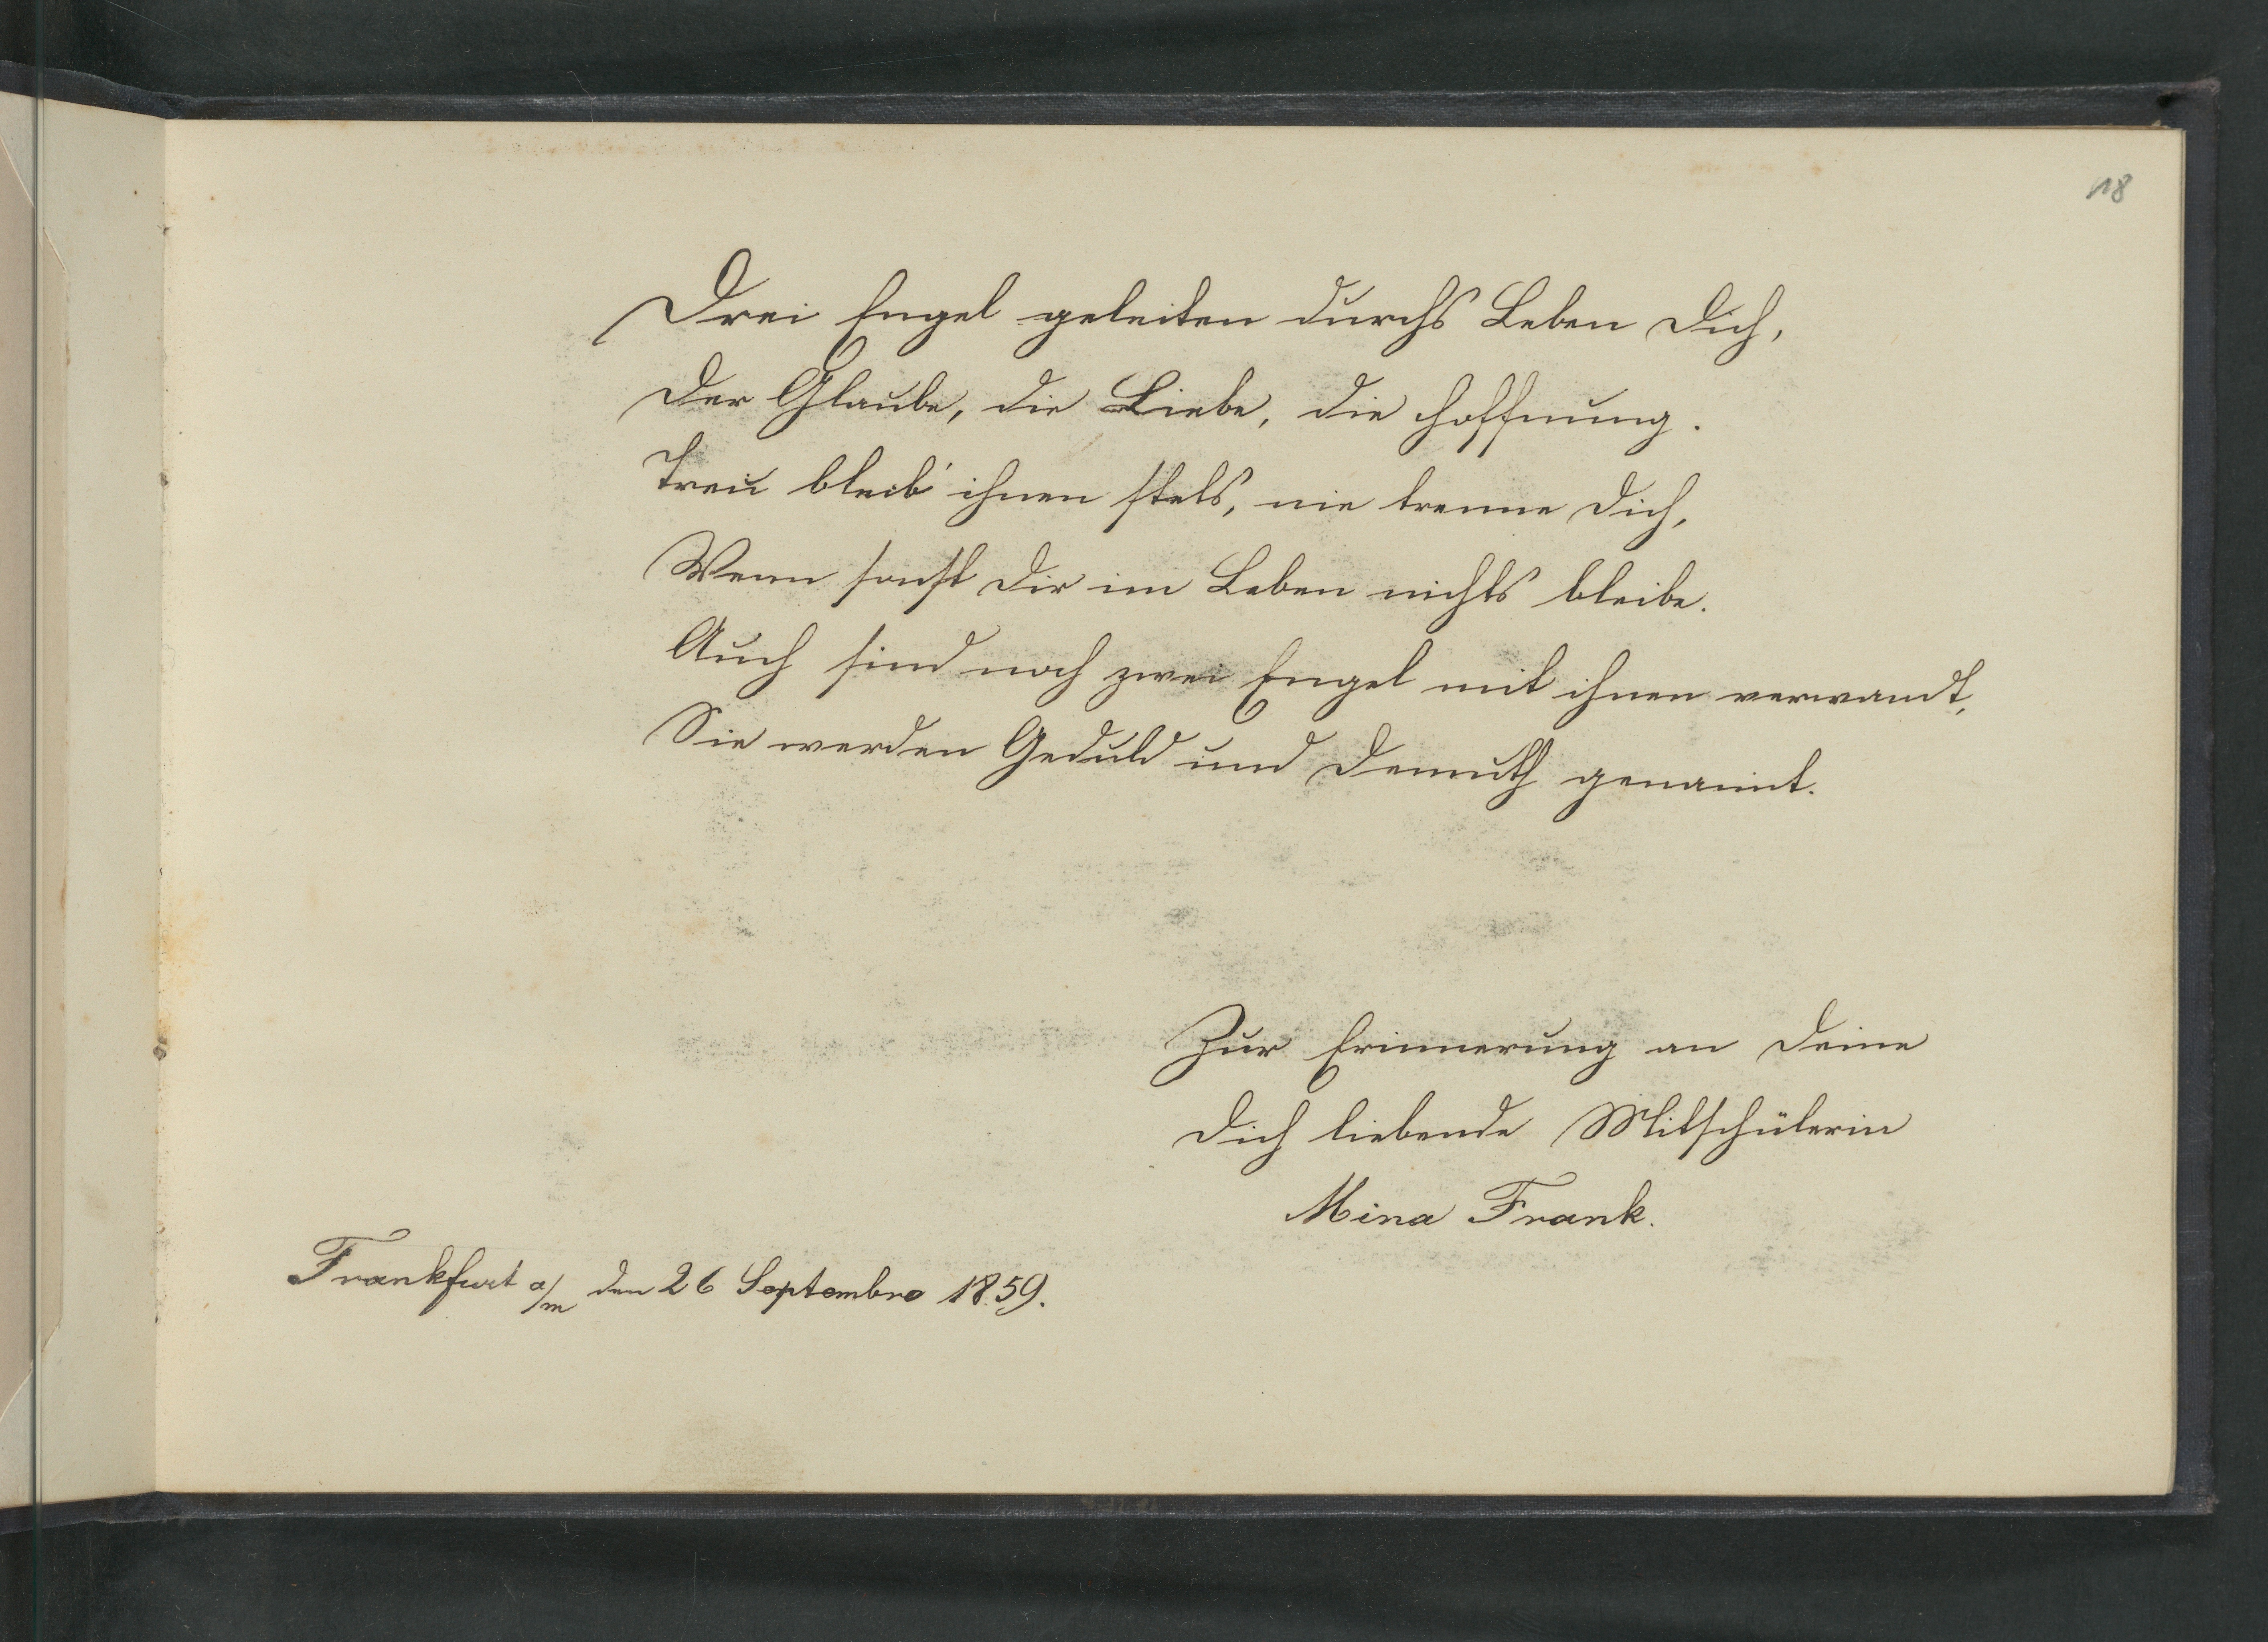 18
Drei Engel geleiten durchs Leben Dich,
Der Glaube, die Liebe, die Hoffnung.
Treu bleib' ihnen stets, nie trenne Dich,
Wenn sonst Dir im Leben nichts bleibe.
Auch sind noch zwei Engel mit ihnen verwandt,
Sie werden Geduld und Demuth genannt.
Zur Erinnerung an Deine
Dich liebende Mitschülerin
Mina Frank.
Frankfurt a/m den 26 Septembre 1859.